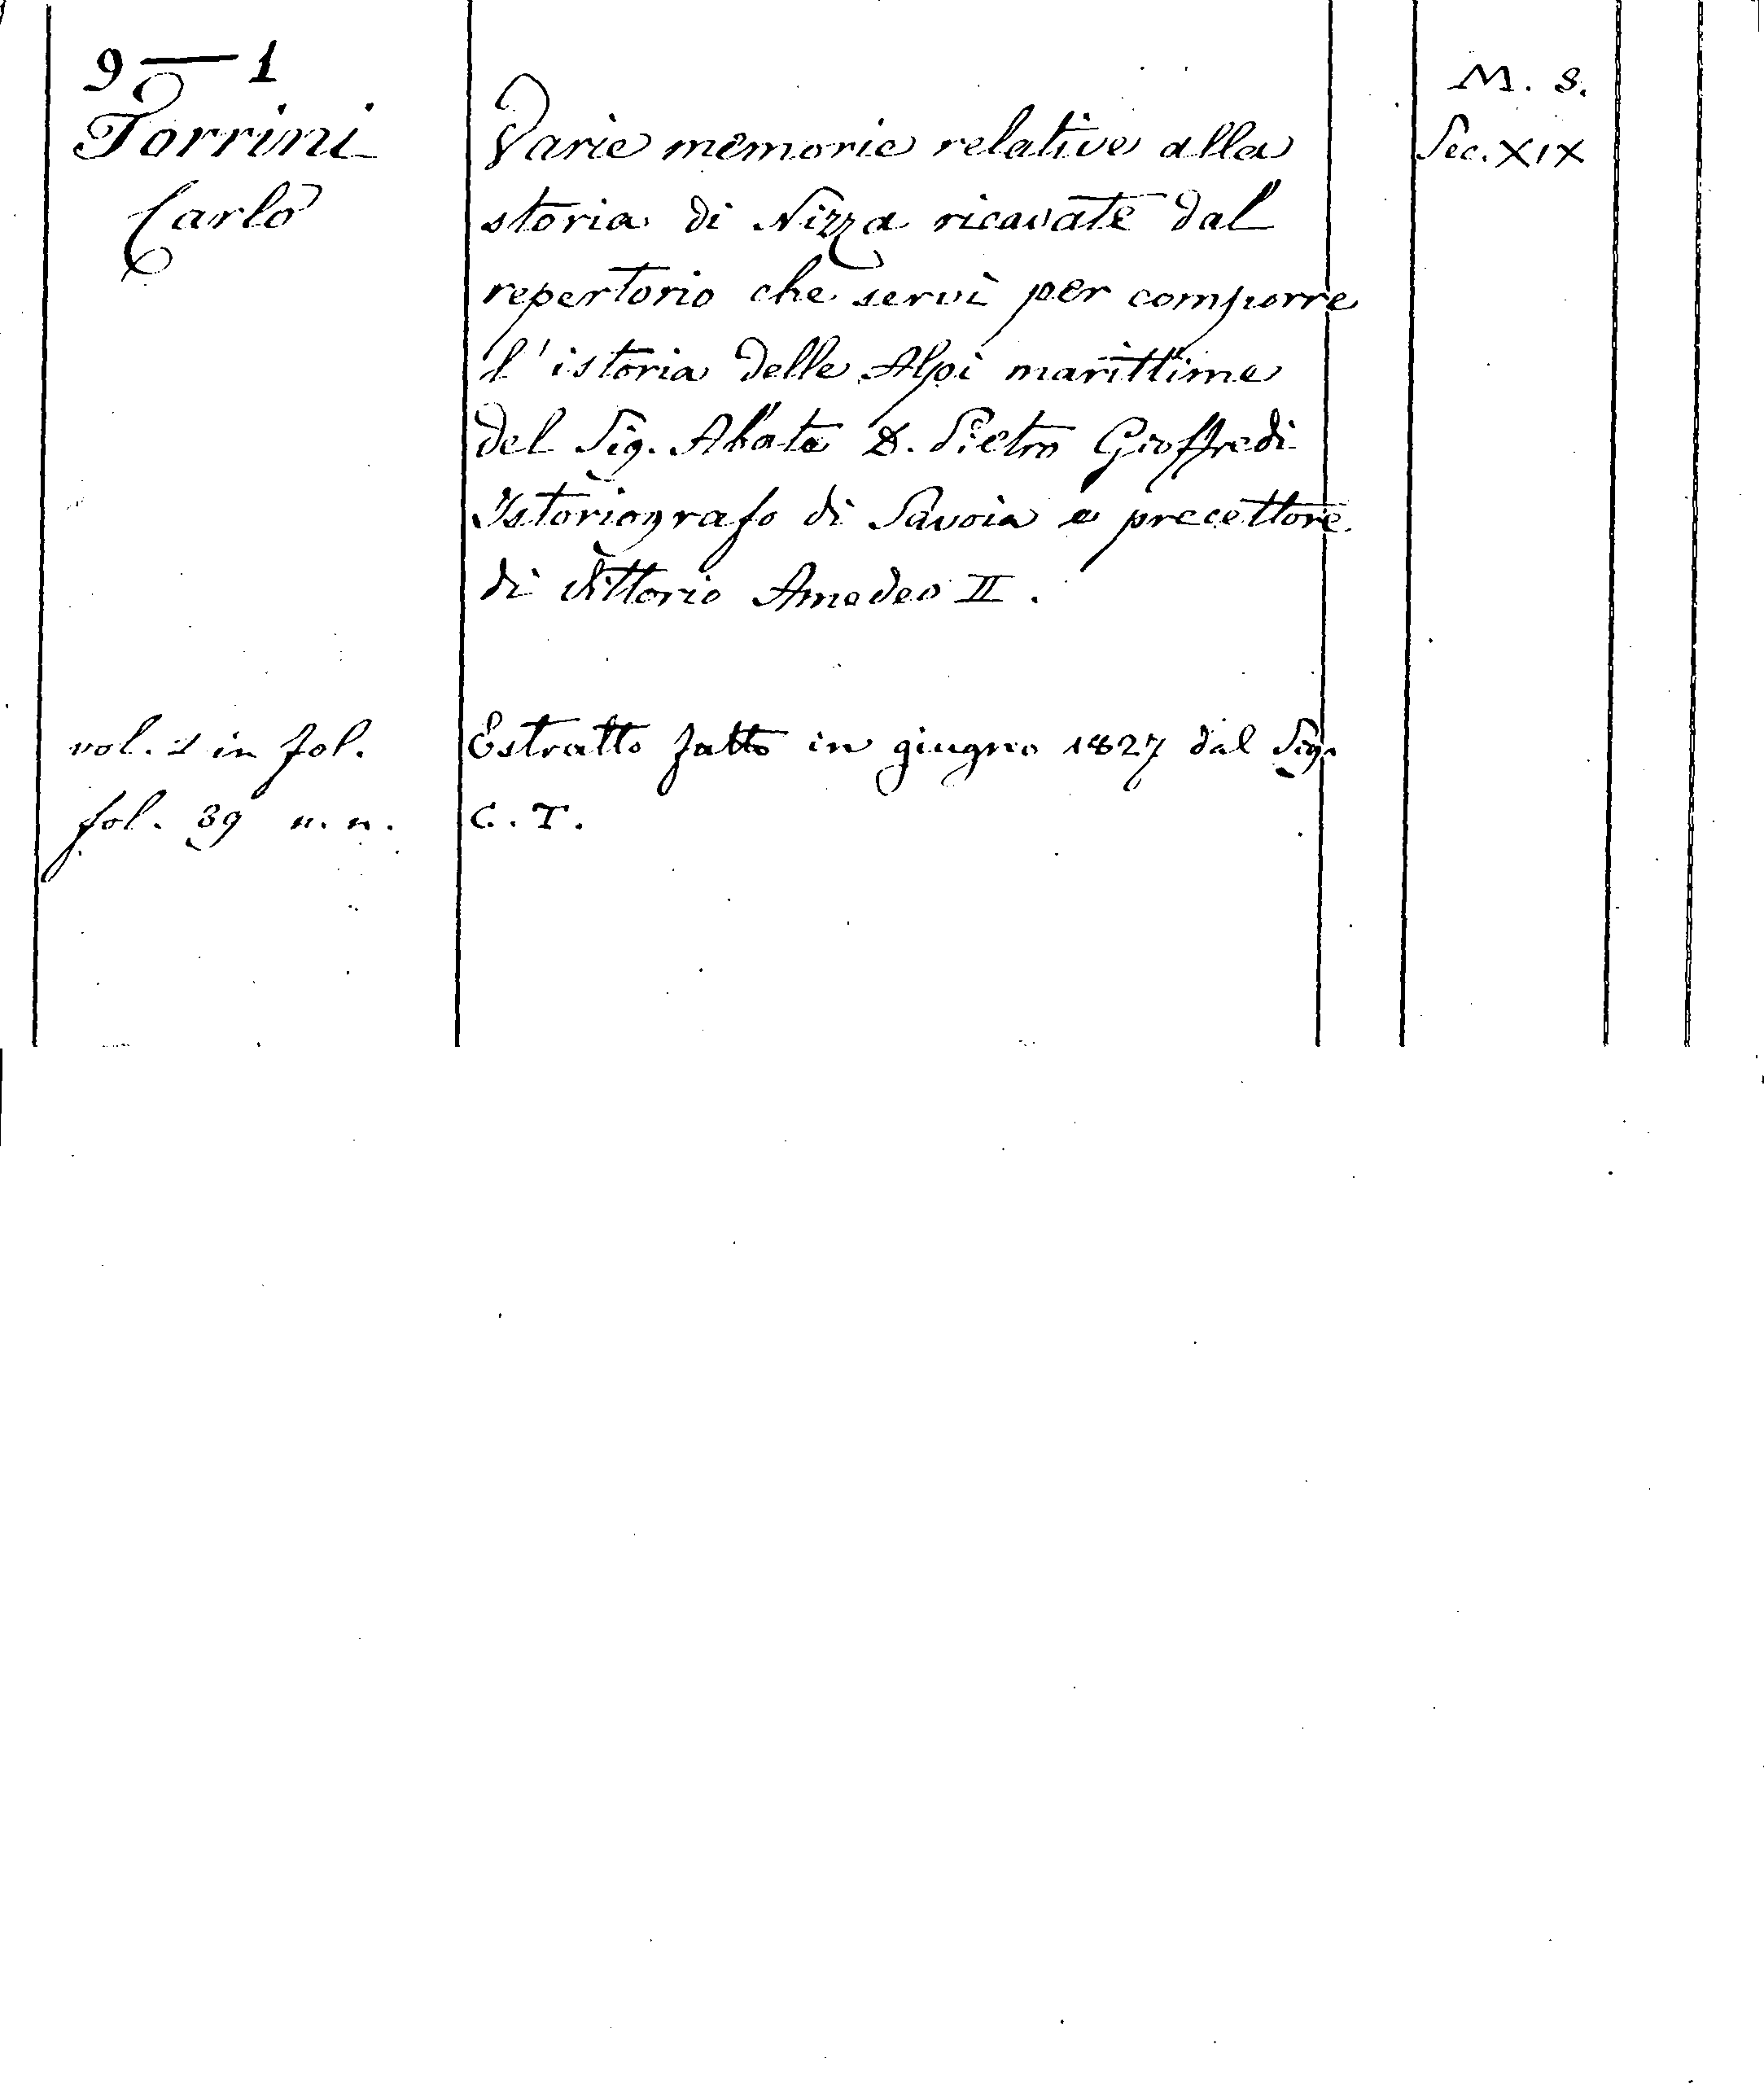 9 — 1
Torrini
Carlo
Varie memorie relative alla
storia di Nizza ricavate dal
repertorio che servì per comporre
l'istoria delle Alpi marittime
del Sig. Abate D. Pietro Gioffredi
Istoriografo di Savoia e precettore
di Vittorio Amedeo II.
M. S.
Sec. XIX
vol. 1 in fol.
fol. 39 n. n.
Estratto fatto in giugno 1827 dal Sig.
C. T.